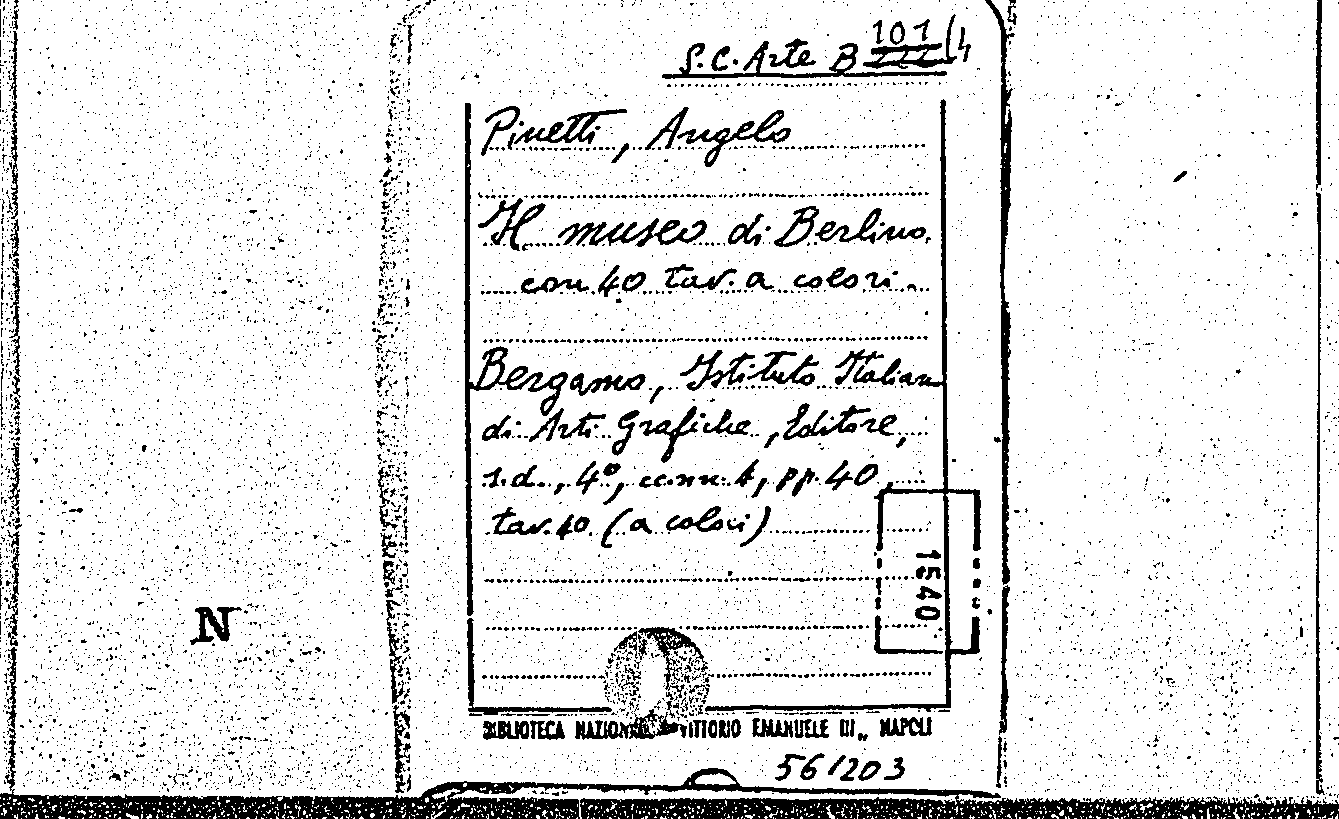 S.C. Arte B 101 (4
Pinetti, Angelo
Il museo di Berlino.
con 40 tav. a colori.
Bergamo, Istituto Italiano
di Arti Grafiche, Editore,
s.d., 4°, pp. 40,
tav. 40 (a colori)
1540
N
BIBLIOTECA NAZIONALE VITTORIO EMANUELE III„ NAPOLI
561203